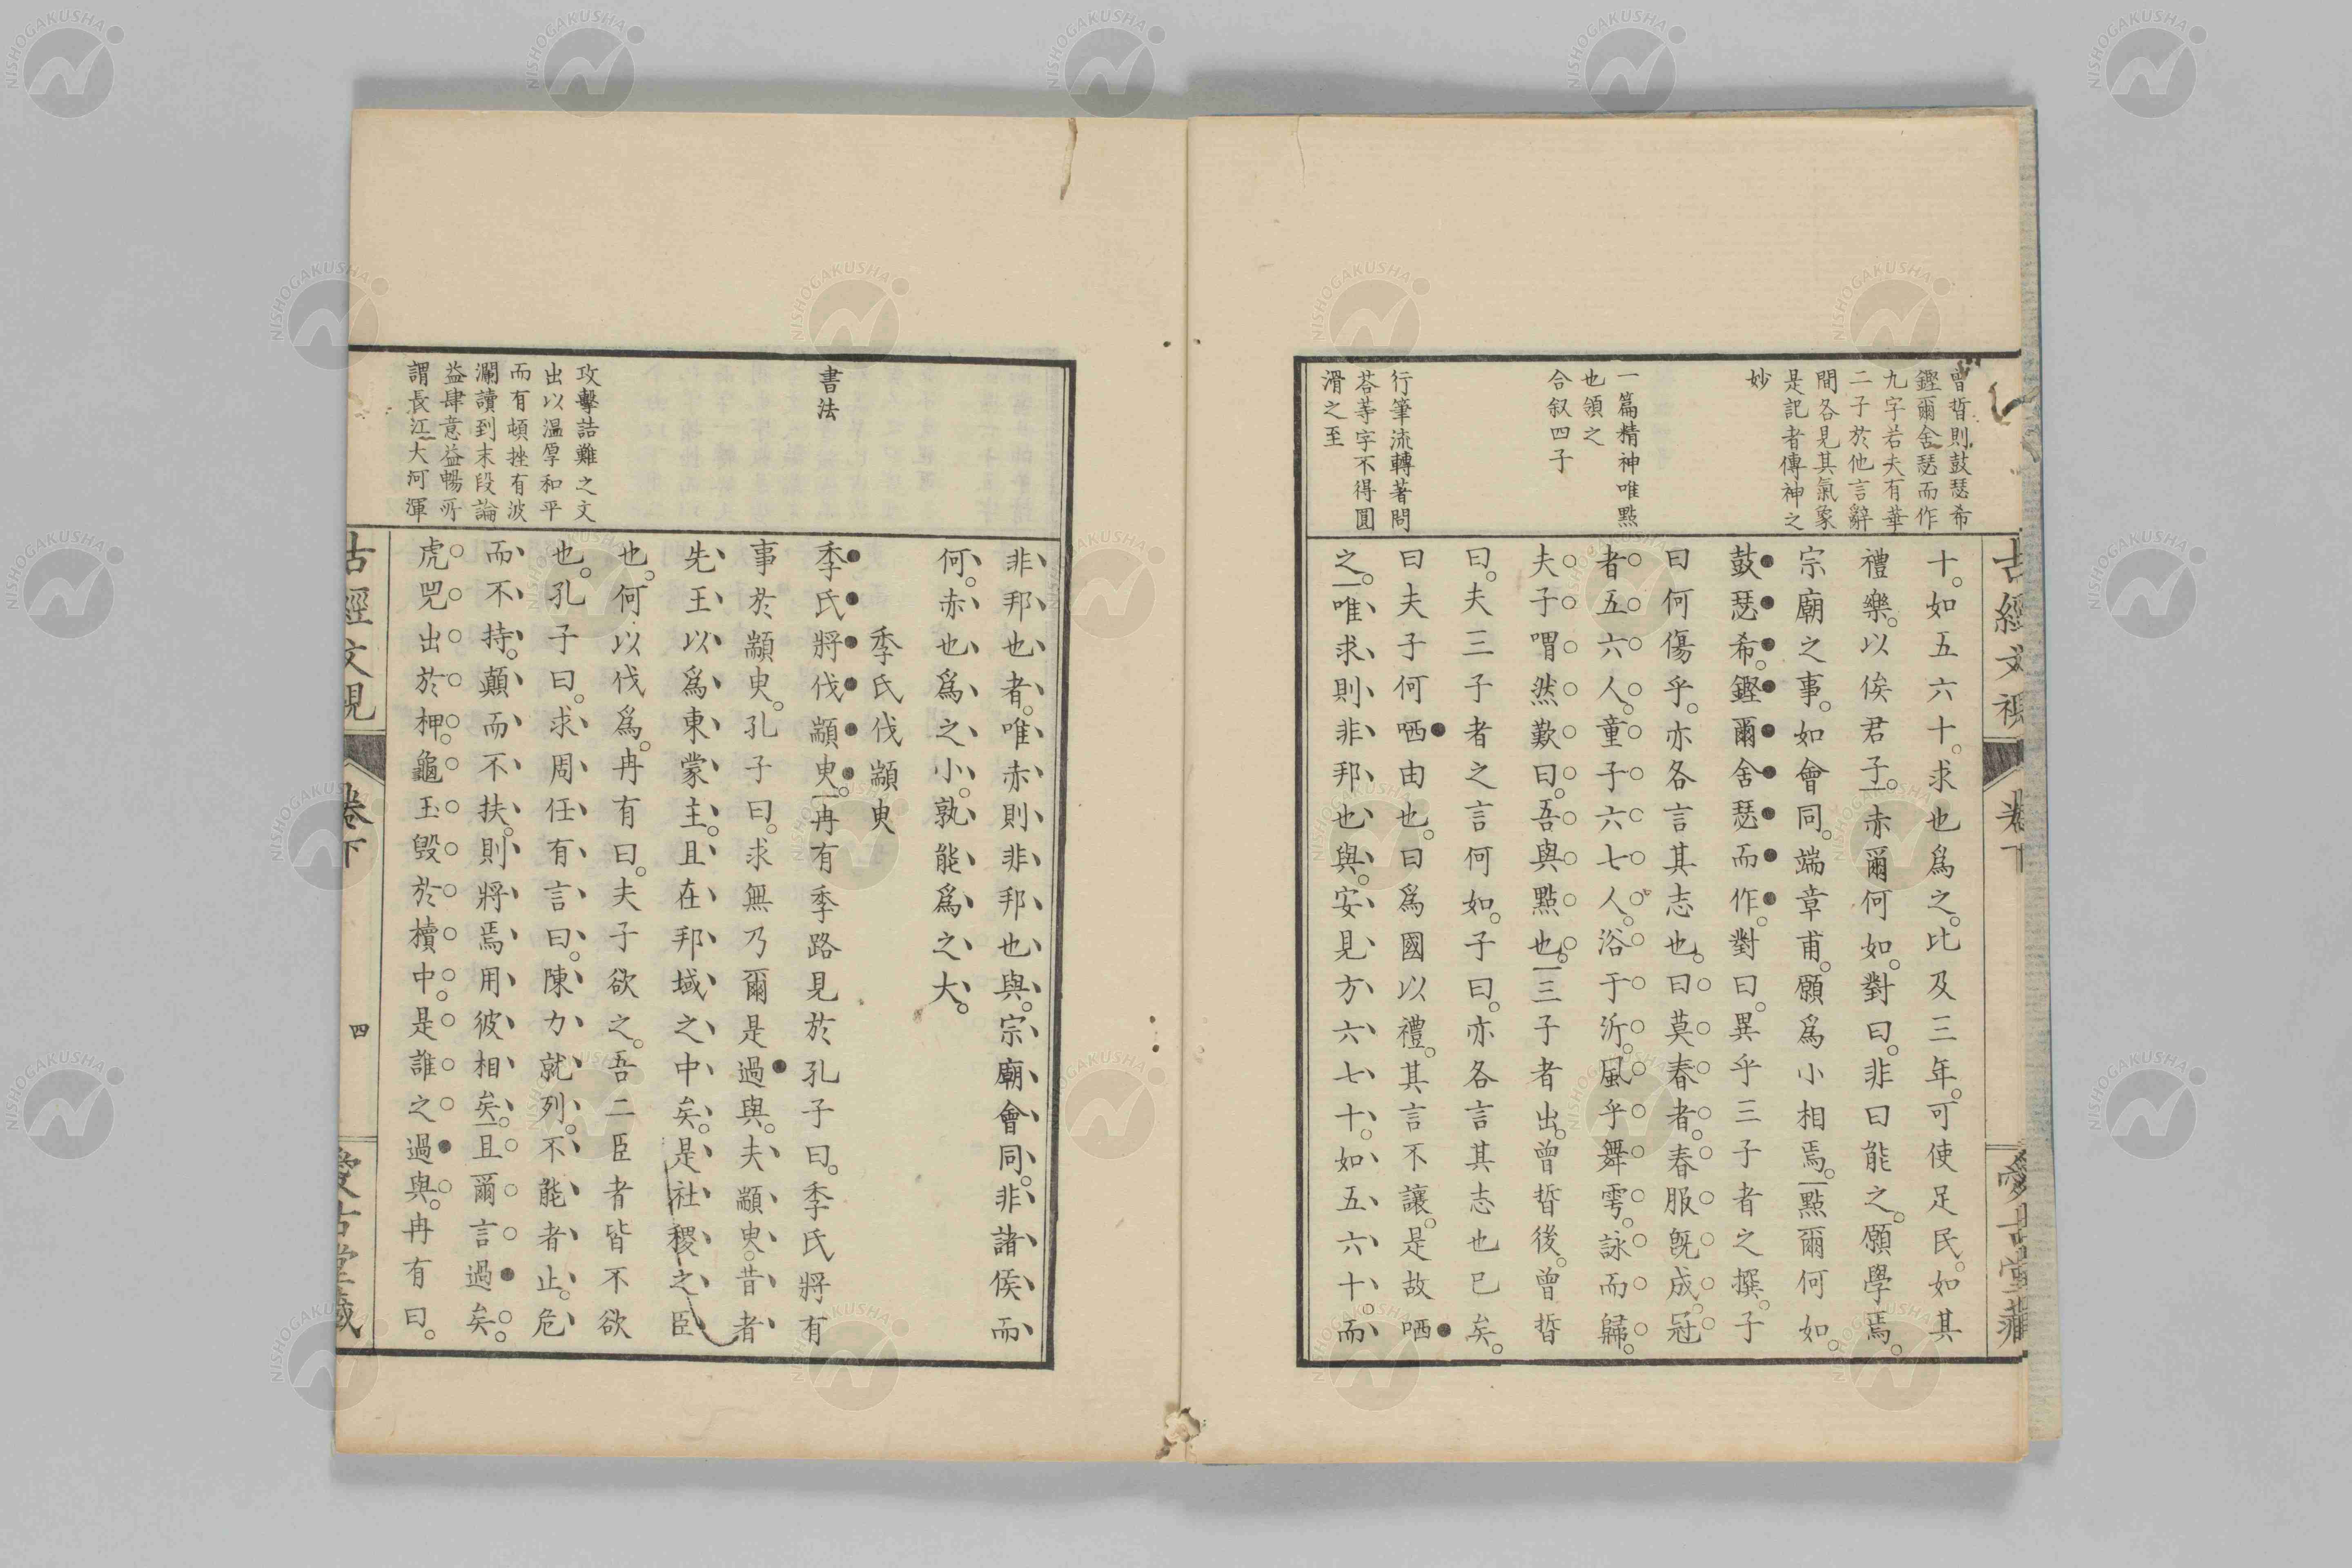 曾晳則鼓瑟希
鏗爾舍瑟而作
九字若夫有華
二子於他言辭
間各見其氣象
是記者傳神之
妙
一篇精神唯點
也領之
合叙四子
行筆流轉著問
荅等字不得圓
滑之至
十。如五六十。求也爲之。比及三年。可使足民。如其
禮樂。以俟君子。赤爾何如。對曰。非曰能之。願學焉。
宗廟之事。如會同。端章甫。願爲小相焉。點爾何如。
鼓瑟希。鏗爾舍瑟而作。對曰。異乎三子者之撰。子
曰何傷乎。亦各言其志也。曰莫春者。春服既成。冠
者五六人。童子六七人。浴于沂。風乎舞雩。詠而歸。
夫子喟然歎曰。吾與點也。三子者出。曾晳後。曾晳
曰。夫三子者之言何如。子曰。亦各言其志也已矣。
曰夫子何哂由也。曰爲國以禮。其言不讓。是故哂
之。唯求則非邦也與。安見方六七十。如五六十。而
書法
攻擊詰難之文
出以温厚和平
而有頓挫有波
瀾讀到末段論
益肆意益暢所
謂長江大河渾
非邦也者。唯赤則非邦也與。宗廟會同。非諸侯而
何。赤也爲之小。孰能爲之大。
季氏伐顓臾
季氏將伐顓臾。冉有季路見於孔子曰。季氏將有
事於顓臾。孔子曰。求無乃爾是過與。夫顓臾。昔者
先王以爲東蒙主。且在邦域之中矣。是社稷之臣
也。何以伐爲。冉有曰。夫子欲之。吾二臣者皆不欲
也。孔子曰。求周任有言曰。陳力就列。不能者止。危
而不持。顛而不扶。則將焉用彼相矣。且爾言過矣。
虎兕出於柙。龜玉毀於櫝中。是誰之過與。冉有曰。
卷下
四